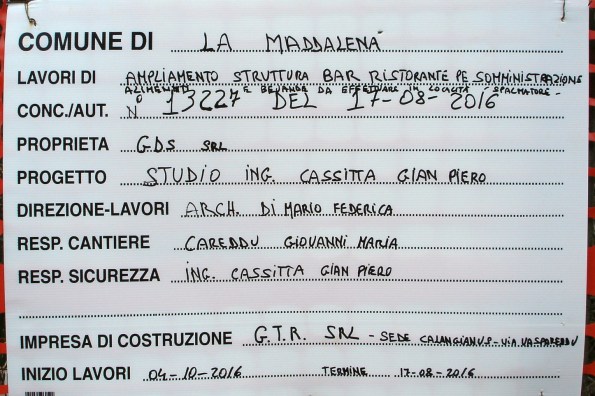 COMUNE DI LA MADDALENA
LAVORI DI AMPLIAMENTO STRUTTURA BAR RISTORANTE PE SOMMINISTRAZIONE
ALIMENTI E BEVANDE DA EFFETTUARE IN LOCALITÀ SPALMATORE-
CONC./AUT. N° 13227 DEL 17-08-2016
PROPRIETA GDS SRL
PROGETTO STUDIO ING. CASSITTA GIAN PIERO
DIREZIONE-LAVORI ARCH. DI MARIO FEDERICA
RESP. CANTIERE CAREDDU GIOVANNI MARIA
RESP. SICUREZZA ING. CASSITTA GIAN PIERO
IMPRESA DI COSTRUZIONE G.T.R. SRL - SEDE CALANGIANUS - VIA
INIZIO LAVORI 04-10-2016 TERMINE 17-08-2016